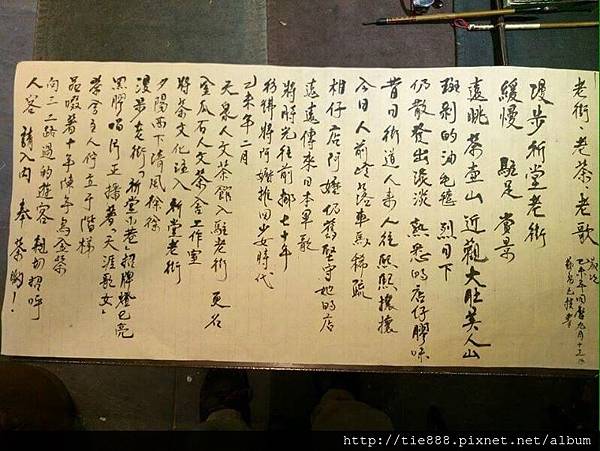 老街、老茶、老歌
歲次
乙未年國曆九月十三日
漫步新堂老街
緩慢 駐足 賞景
遠眺茶壺山 近觀大肚美人山
斑剝的油毛氈 烈日下
仍散發出淡淡 熟悉的店仔膠味
昔日街道人來人往熙熙攘攘
今日人前路落車馬稀疏
柑仔店阿嬤仍舊堅守她的店
遠遠傳來日本軍歌
將時光往前挪七十年
彷彿將阿嬤推回少女時代
乙未年二月
天泉人文茶館入駐老街 更名
金瓜石人文茶舍工作室
將茶文化注入 新堂老街
夕陽西下清風徐徐
漫步老街「新堂小巷」招牌燈已亮
黑膠唱片正播著「天涯歌女」
茶舍主人佇立于階梯
品啜著十年陳年烏金茶
向三二路過的遊客 親切招呼
人客 請入內 奉茶喲！
http://tie888.pixnet.net/album